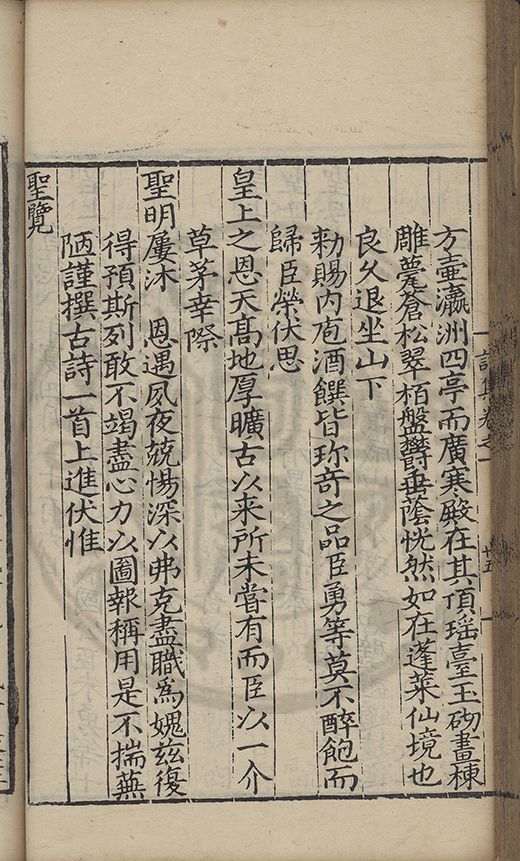 詩集卷之一
廿五
方壷瀛洲四亭而廣寒殿在其頂瑶臺玉砌畫棟
雕甍蒼松翠栢盤欝垂陰恍然如在蓬萊仙境也
良久退坐山下
勑賜内庖酒饌皆珎竒之品臣勇等莫不醉飽而
歸臣榮伏思
皇上之恩天髙地厚曠古以来所未嘗有而臣以一介
草茅幸際
聖明屢沐 恩遇夙夜兢惕深以弗克盡職爲媿兹復
得預斯列敢不竭盡心力以圖報稱用是不揣蕪
陋謹撰古詩一首上進伏惟
聖覽